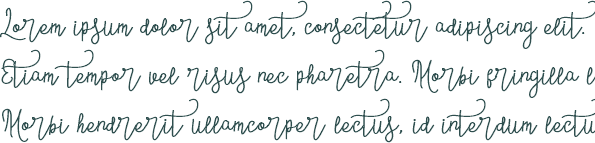 Lorem ipsum dolor sit amet, consectetur adipiscing elit.
Etiam tempor vel risus nec pharetra. Morbi fringilla l
Morbi hendrerit ullamcorper lectus, id interdum lectu